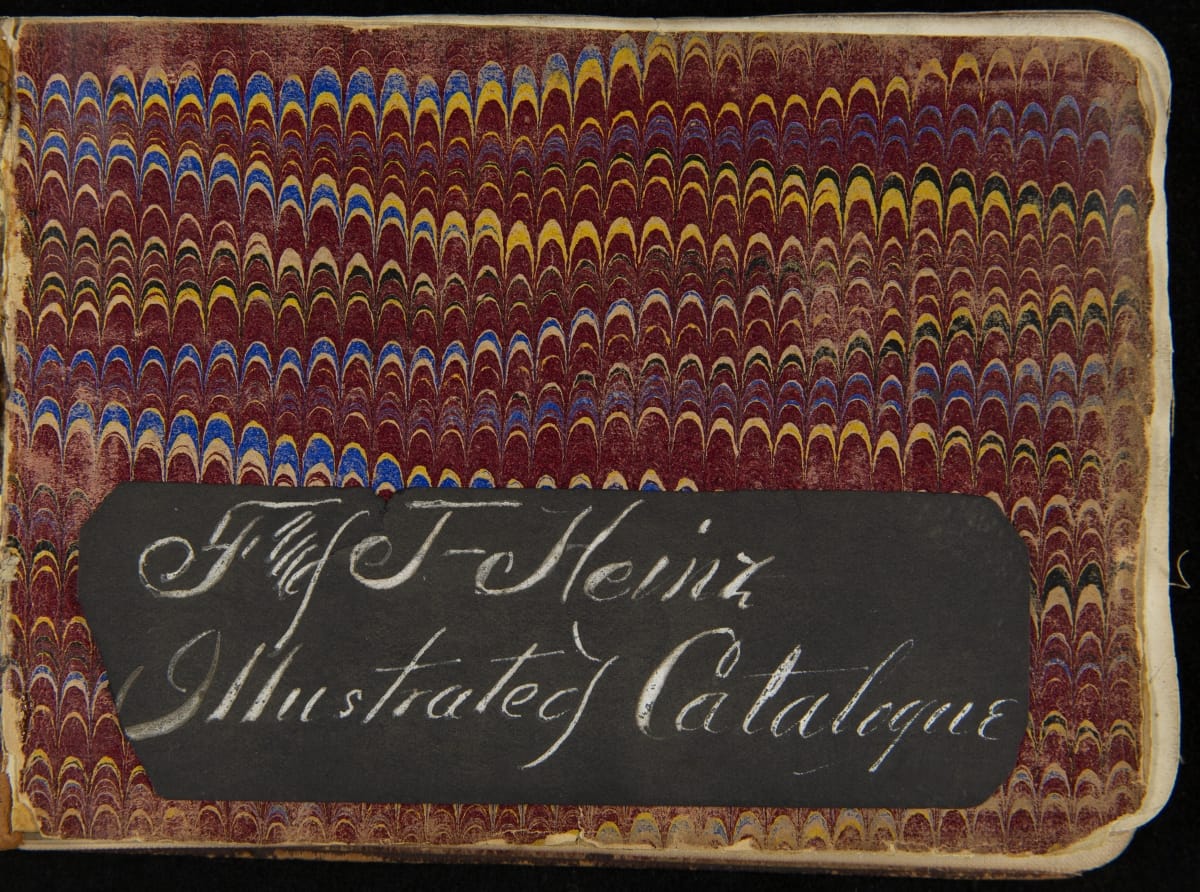 Heinz
Illustrated Catalogue